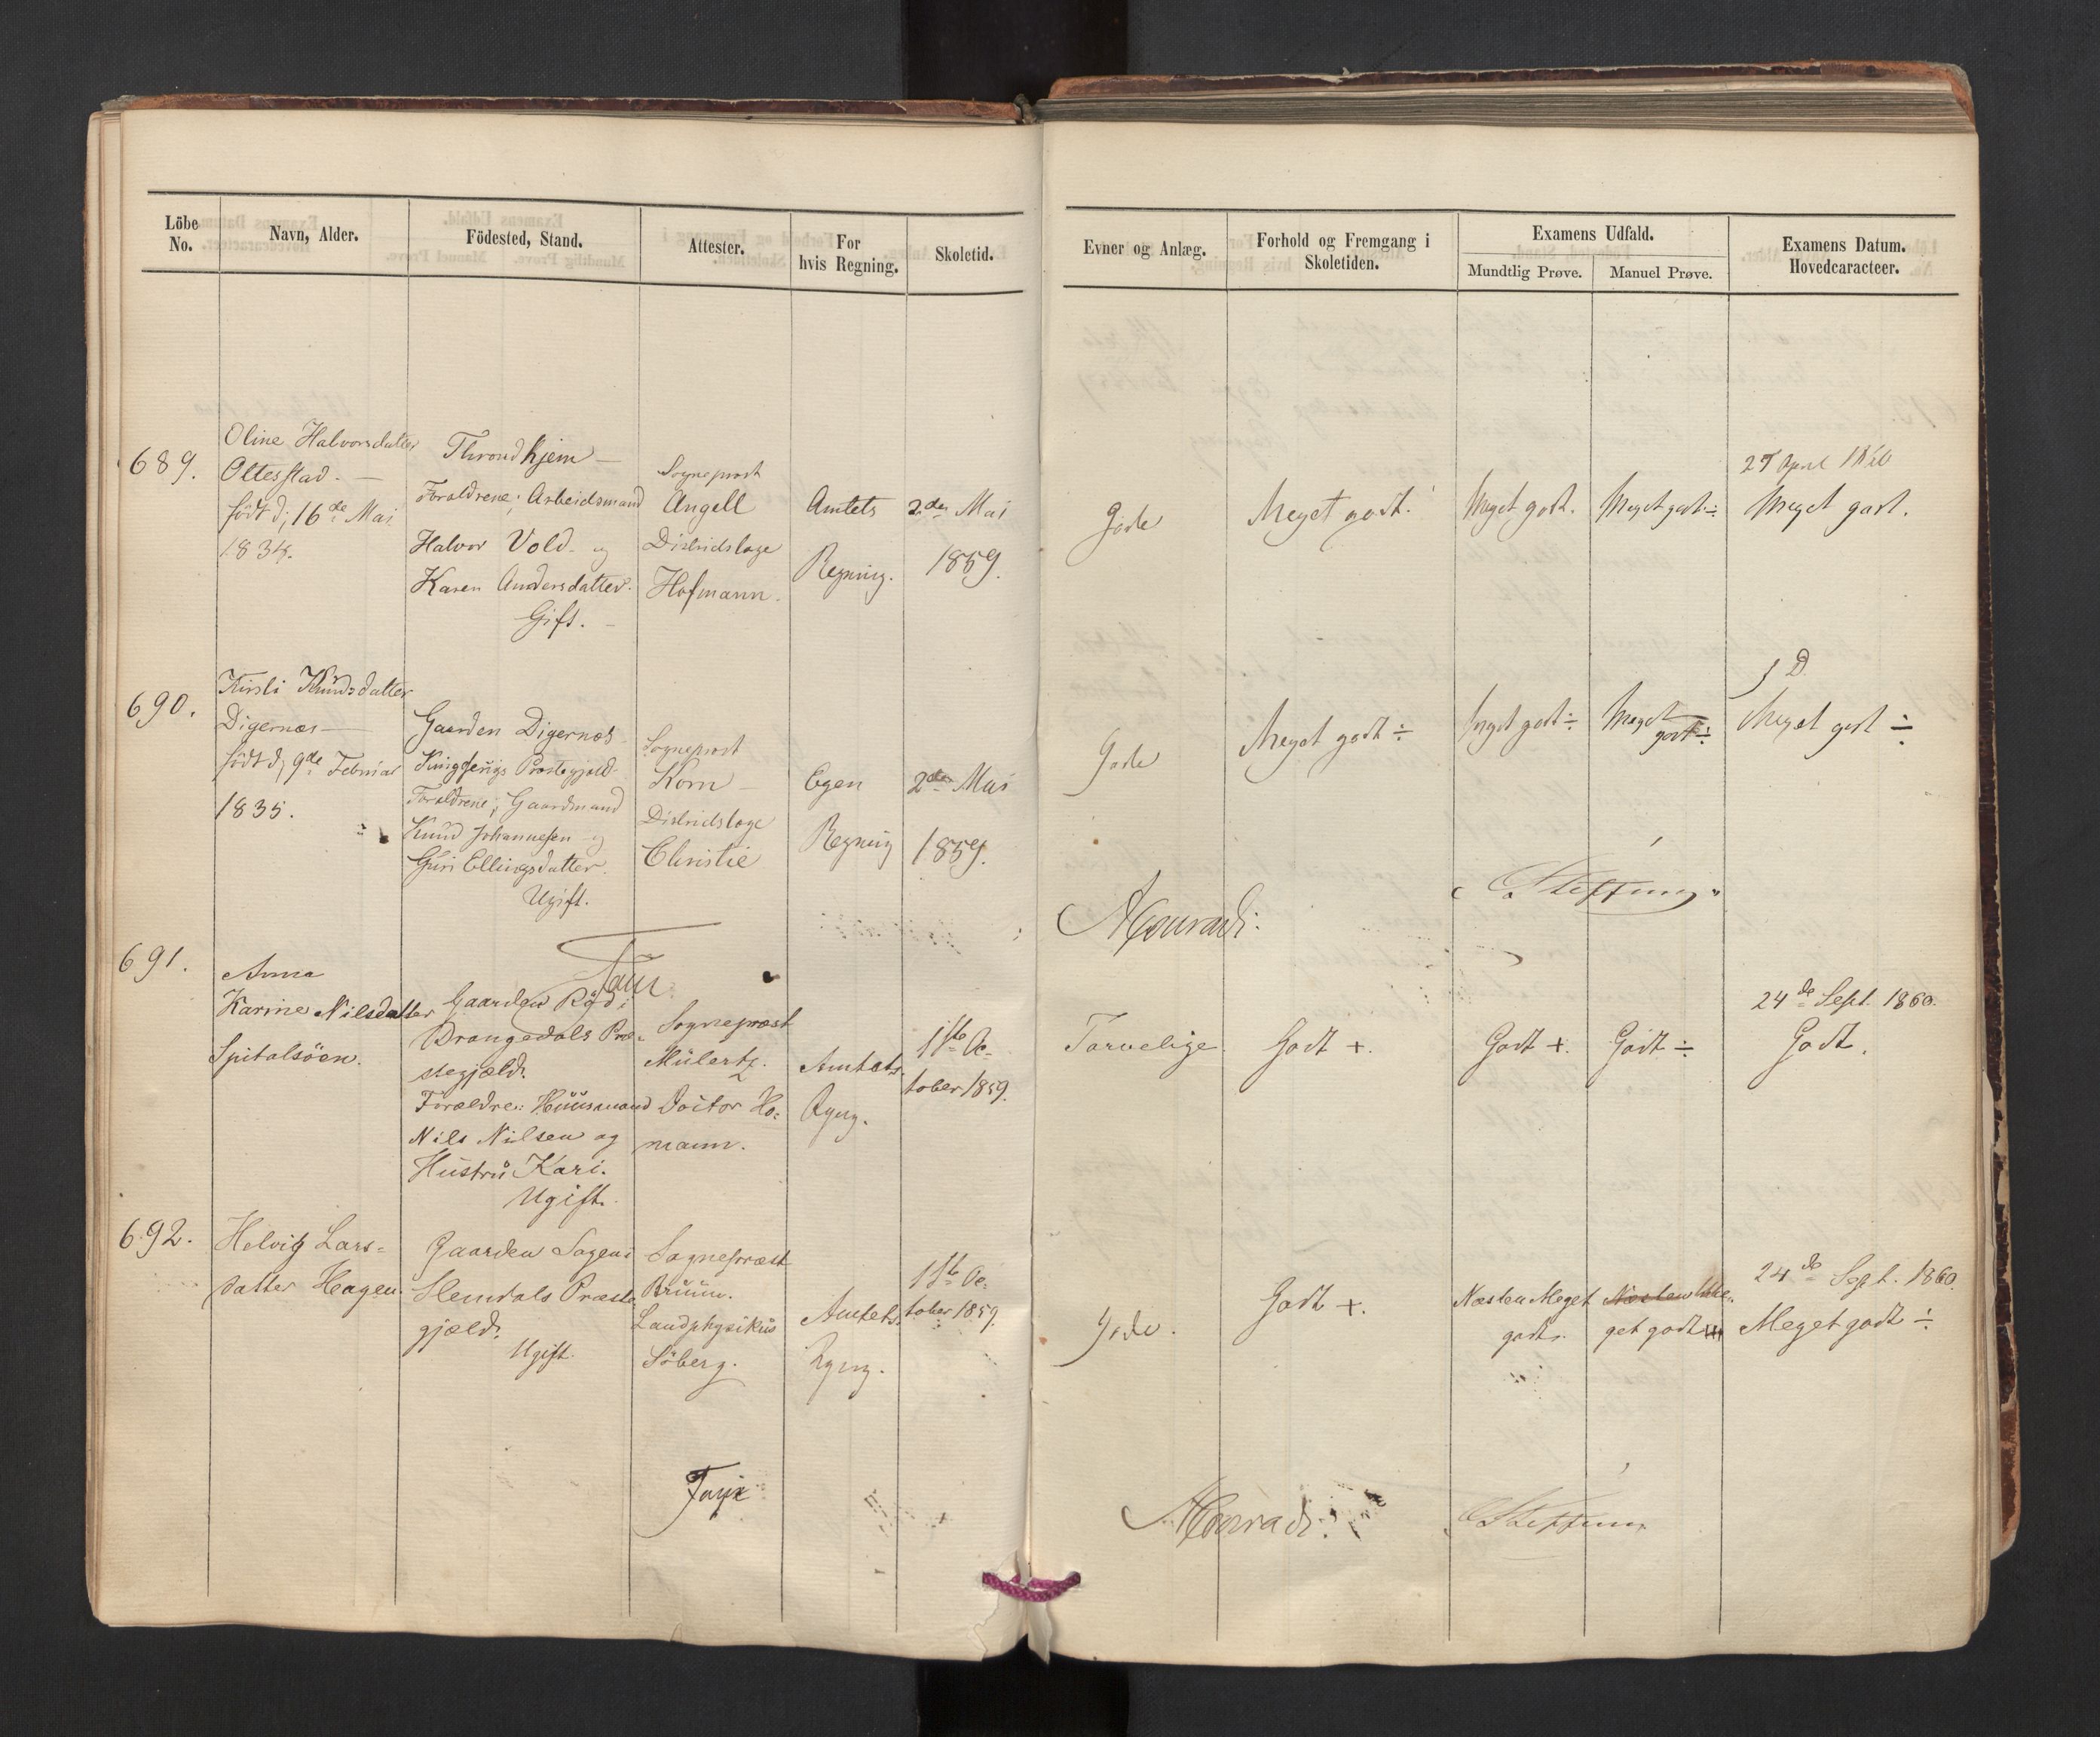 Löbe No.
Navn, Alder.
Födested, Stand.
Attester.
For hvis Regning.
Skoletid.
Evner og Anlæg.
Forhold og Fremgang i Skoletiden.
Examens Udfald.
Mundtlig Prøve.
Manuel Prøve.
Examens Datum. Hovedcaracteer.
689.
Oline Halvorsdatter
Oltesstad. —
född d; 16de Mai
1834.
Throndhjem —
Forældrene; Arbeidsmand
Halvor Vold. og
Karen Andersdatter.
Gift. —
Sogneprest
Angell
Districtslæge
Hofmann.
Amtets
Regning.
2den Mai
1859.
Gode
Meget godt.
Meget godt.
Meget godt ÷
27 April 1860
Meget godt.
690.
Kirsti Knudsdatter
Digernæs —
född d; 9de Februar
1835.
Gaarden Digernæs
Præstegjæld
Forældrene; Gaardmand
Knud Johannesen og
Guri Ellingsdatter.
Ugift.
Sogneprest
Korn —
Districtslæge
Christie
Egen
Regning
2den Mai
1859.
Gode
Meget godt ÷
Meget godt ÷
Meget
godt ÷
Meget godt ÷
Faye
Conradi.
Steffens
691.
Anna
Karine Nilsdatter
Spitalsöen.
Gaarden Röd i
Drangedals Præ-
stegjæld.
Forældre: Huusmand
Nils Nilsen og
Hustru Kari.
Ugift.
Sogneprest
Mülertz.
Doctor Ho-
mann.
Amtets
Rgng.
1ste Oc-
tober 1859.
Tarvelige
Godt +.
Godt +.
Godt ÷
24de Sept. 1860.
Godt.
692.
Helvig Lars-
datter Hagen.
Gaarden Sogen i
Præste-
gjæld.
Ugift.
Sogneprest
Bruun.
Landphysikus
Söberg.
Amtets
Rgng.
1ste Oc-
tober 1859.
Gode.
Godt +.
Næsten Meget
godt.
Næsten Me-
get godt
24de Sept. 1860.
Meget godt ÷
Faye
Conradi.
Steffens